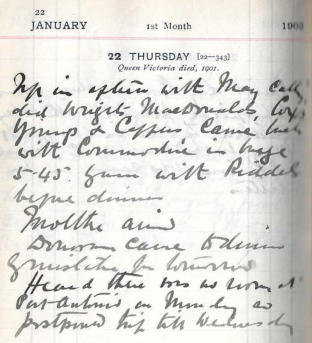 22
JANUARY 1st Month 190
22 THURSDAY [22—343]
Queen Victoria died, 1901.
Up in with May
did Wrights MacDonalds, Cox
Youngs & came back
with Commodore in
5-45 with Riddel
before dinner
Moltke
Donovan came to dinner
for tomorrow
Heard there was no room at
Port Antonio on Monday so
postponed trip till Wednesday